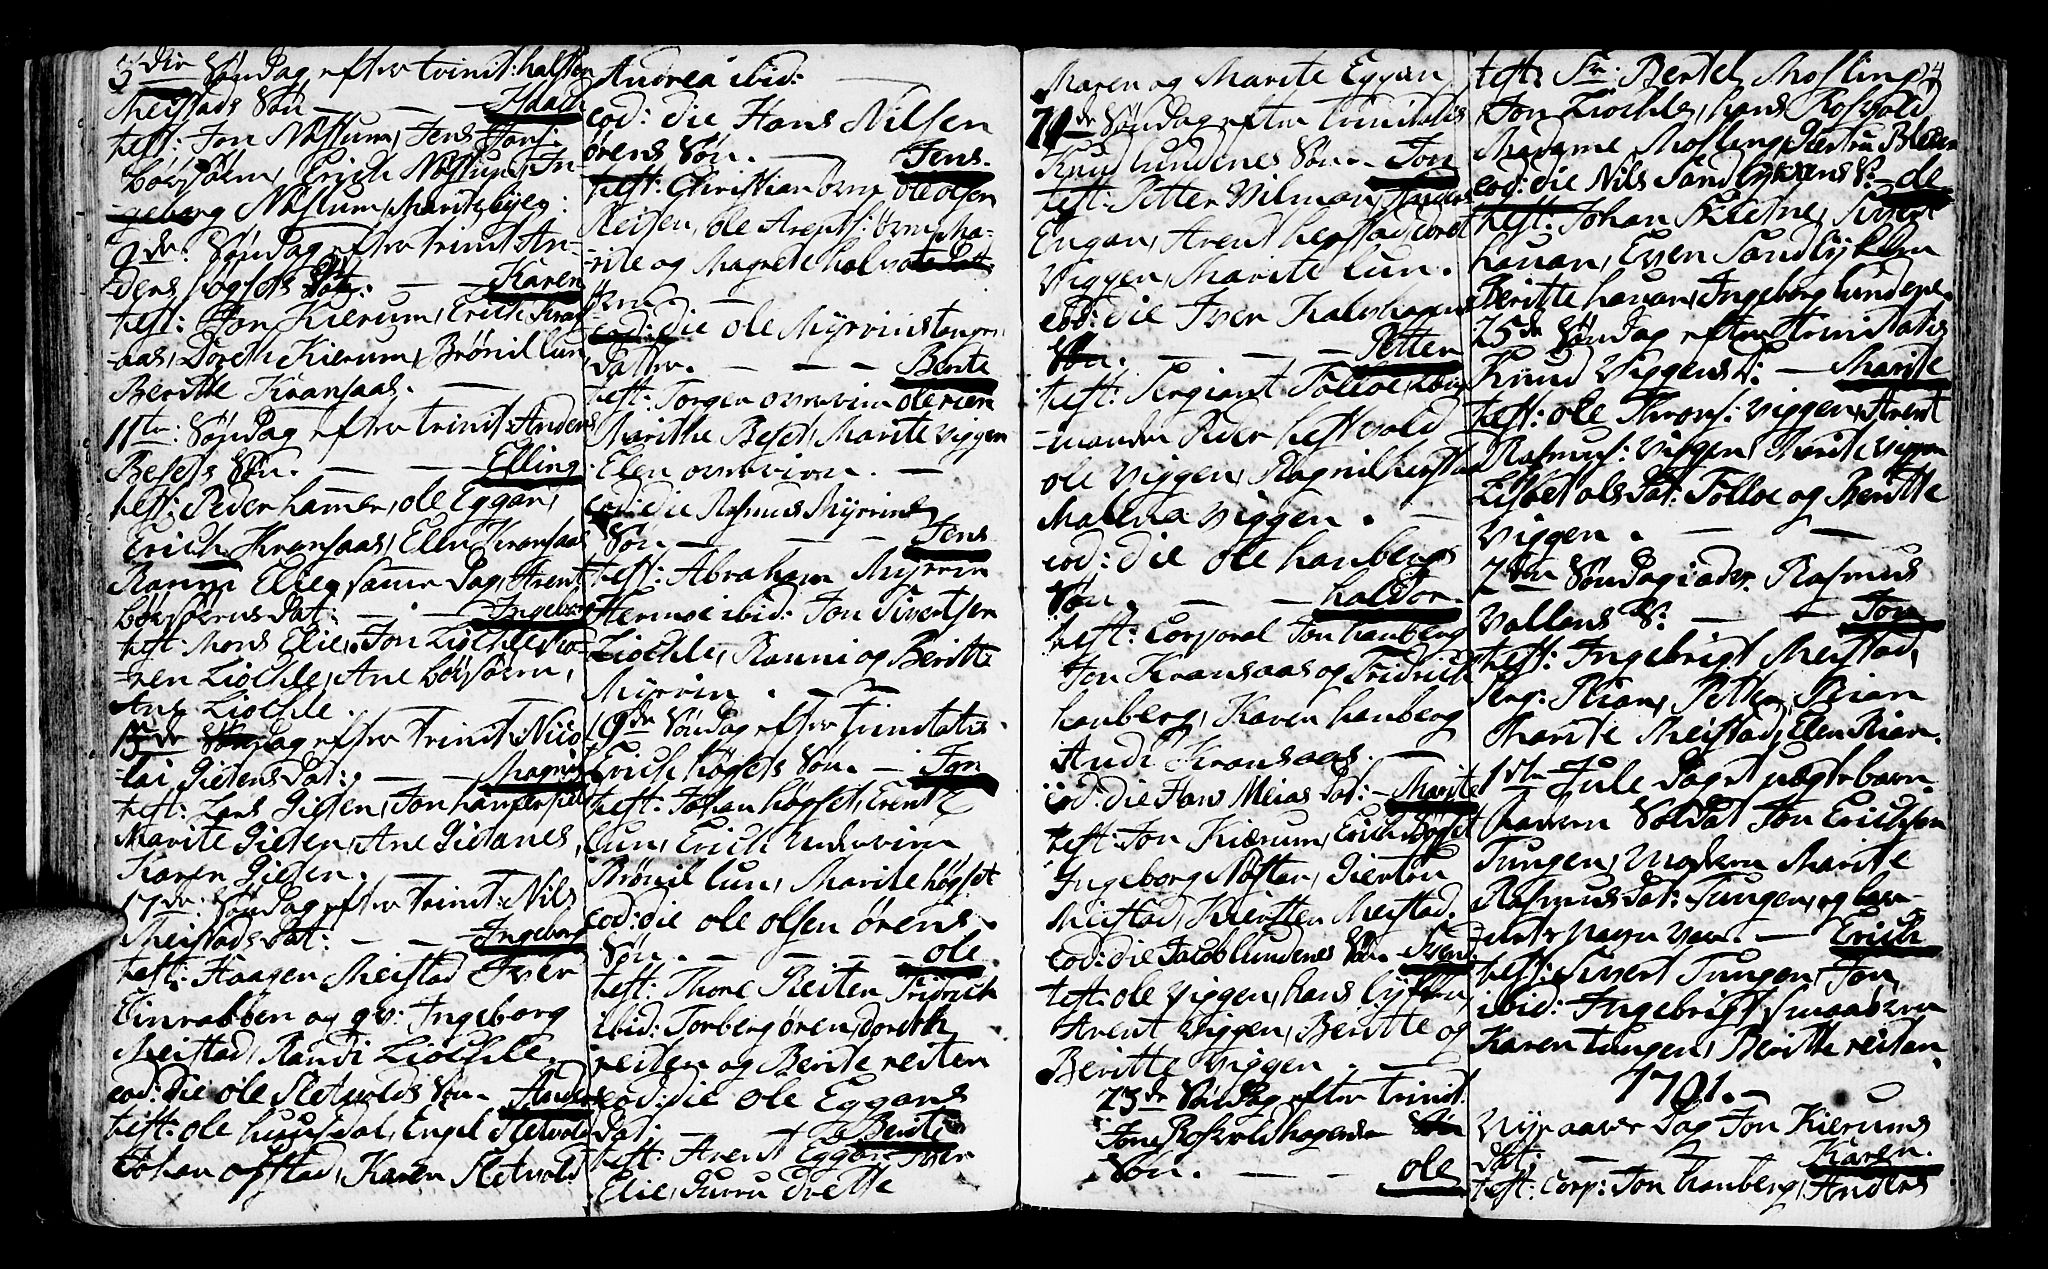 3die Søndag efter trinit: halsten
Meistads Søn — — — Haad
test: Jon Næssum, Jens Hans:
børsørn, Erich Næssum, In-
geborg Næssum, Marite byeg:
9de: Søndag efter trinit: An-
ders høgsets Dat: — — Karen
test: Jon Kierum, Erich Krans
aas, Doreth Kierum, Brønil lun,
Beritte Kransaas. —
11te: Søndag efter trinit: Anders
Besets Søn. — — — Elling
test: Peder hamer, ole Eggan,
Erich Kransaas, Elen Kransaas
Ranni Elie, samme Dag, Arent
børsørns Dat: — — Ingeborg
test: Mons Elie, Jon Liøchle, Ka-
ren Liøchle, Ane børsørn,
Ane Liøchle.
15de Søndag efter trinit: Nico
lai Gietens Dat: — — Magnil
test: Lars Gieten, Jon
Marite Gieten, Ane Gietanes,
Karen Gieten. —
17de: Søndag efter trinit: Nils
Meistads Dat: — — Ingeborg
test: Haagen Meistad Iver
Einrabben og qv: Ingeborg
Meistad, Randi Liøchle.
eod: die ole Sletvolds Søn. Anders
test: ole huusdal, Engel Sletvold
Johan ofstad, Karen Sletvold
Andrea ibid: —
eod: die Hans Nilsen
ørens Søn. — Jens.
test: Christian ørn ole olsen
Reisen, ole Arents: ørn, Ma-
rite og Magrete
ørn. — —
eod: die ole Myrvinstanens
Datter. — — — Berite
test: Jorgen overvin ole
Marithe Beset, Marite viggen
Elen overvin. —
eod: die Rasmus Myrvins
Søn — — — Jens
test: Abraham Myrvin
ibid: Jon Sivertsen
Liøchle, Ranni og Beritte
Myrvin. — —
19de Søndag efter trinitatis.
Erich høgsets Søn. — Jon
test: Johan høgset, Erent
lun, Erich Undervin
Brønil lun, Marite høgset
eod: die ole olsen ørens
Søn. — — — — ole.
test: Thore Reiten Fridrich
ibid: Torberg øren, doreth
reiten og Berite reiten
eod: die ole Eggans
Dat: — — Berite
test: Arent Eggan Iver
Elie, Gurru
Maren og Marite Eggan
21de Søndag efter trinitatis
Knud lundenes Søn. — Jon
test: Petter Vilman, Anders
Engan, Arent herstad
Viggen, Marite lun.
eod: die Iver Kalvhagens
Søn. — — — Petter
test: Sergiant Folloe,
mander Peder hestvold
ole Viggen, Ragnil herstad
Malena Viggen. —
eod: die ole hanbergs
Søn. — — haldor.
test: Corporal Jon hanberg
Jon Kransaas og Fridrich
hanberg, Karen hanberg
Kransaas. —
eod: die Hans Meias Dat: — Marite
test: Jon Kierum, Erich høgset
Ingeborg Nøsten, Giertru
Meistad, Kiersten Meistad.
eod: die Jacob lundenes Søn. Sven:
test: ole Viggen, hans lykken
Arent Viggen, Beritte og
Beritte Viggen. —
23de Søndag efter trinit:
Jone Roskvoldhagens Søn
Søn. — — — ole
24
test: Fr: Bertel Mosling,
Jon Liøchle, hans Roskvold
Madame Mosling, Giertru
eod: die Nils Sandlykkens S: — ole
test: Johan Fletne, Sivert
hauan, Even Sandlykken
Beritte hauan, Ingeborg lundene.
25de Søndag efter trinitatis
Knud Viggens D: — Marite
test: ole Throns: viggen, Arent
Rasmus: viggen, Marite viggen
Lisbet ols Dat: Folloe og Beritte
Viggen. — — —
2den Søndag i adv: Rasmus
Vollens S: — — Jon
test: Ingebrigt Meistad,
Serg: Rian, Petter Rian
Marite Meistad, Elen Rian.
1ste Jule Dag et uægte barn
faderen Soldat Jon Erichsen
Tungen, Moderen Marite
Rasmus Dat: Tungen, og bar-
nets Navn var. — Erich
test: Sivert Tungen, Jon
ibid: Ingebrigt smaaørn
Karen tungen, Beritte reitan.
1701. —
Nyt aars Dag Jon Kierums
Dat: — — Karen.
test: Corp: Jon hanberg, Anders